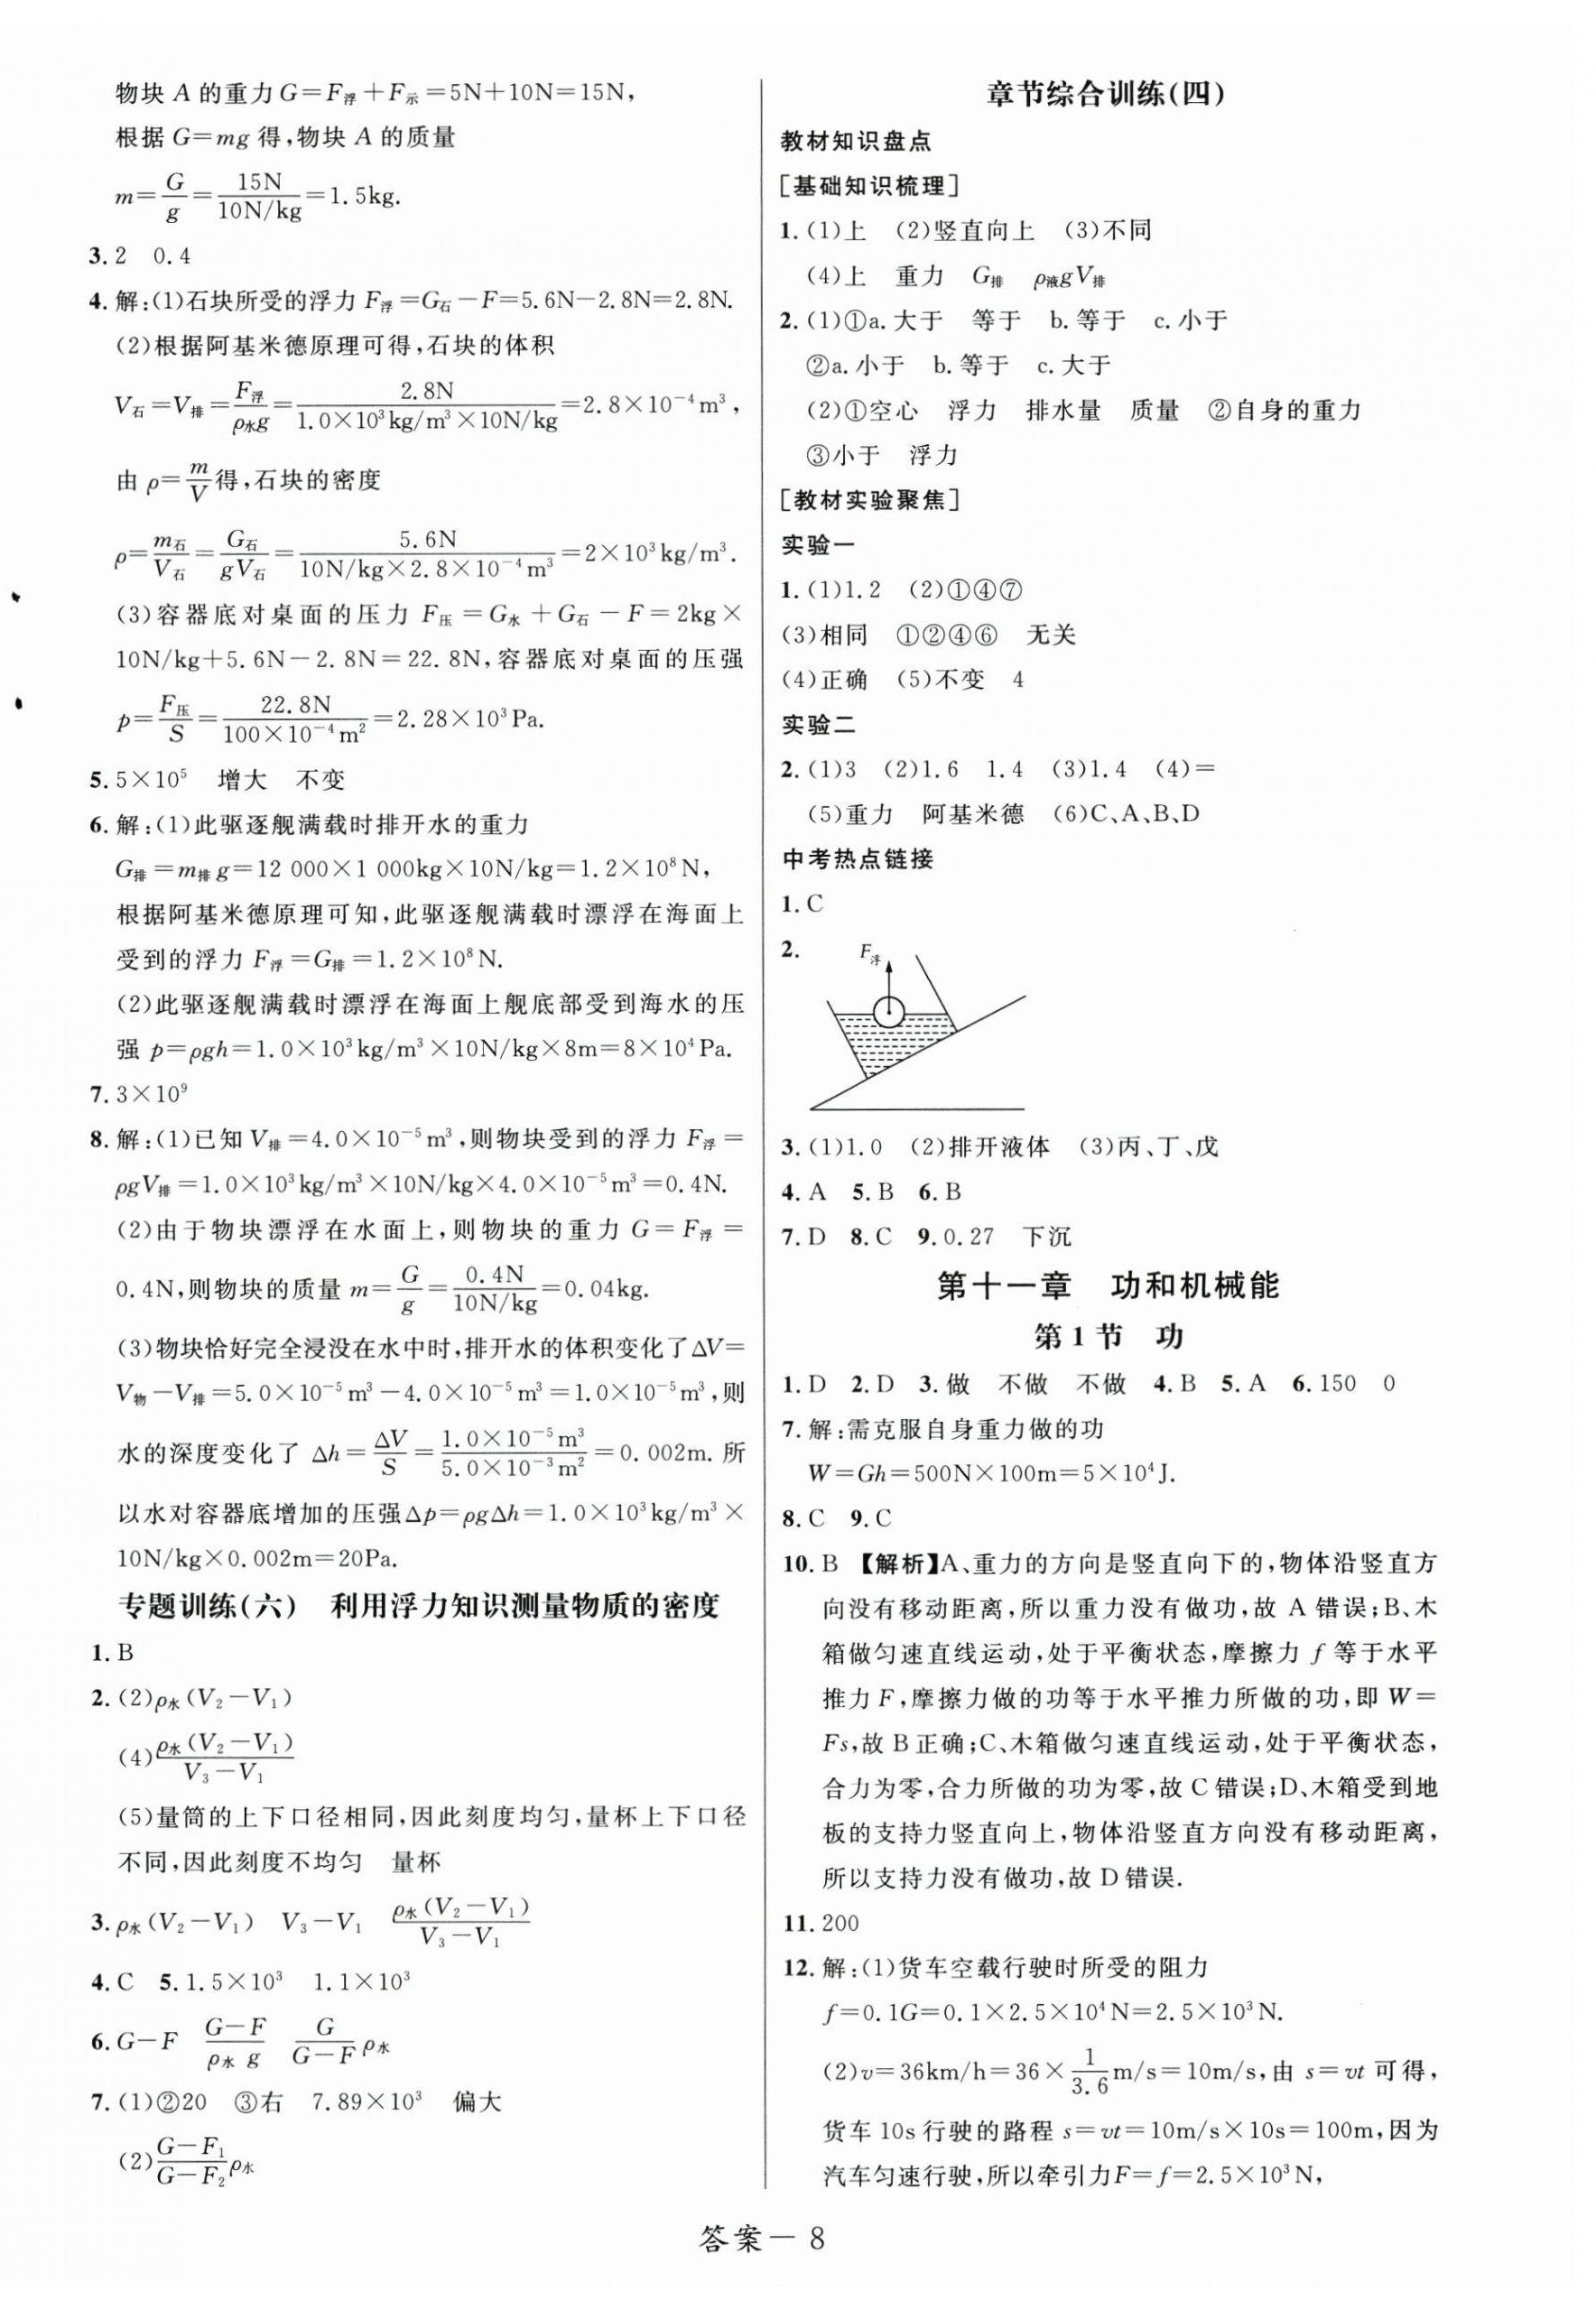 物块 A 的重力 G=F浮+F示=5N+10N=15N,
根据 G=mg 得,物块 A 的质量
m=G/g=15N/10N/kg=1.5kg.
3.2 0.4
4.解:(1)石块所受的浮力 F浮=G石-F=5.6N-2.8N=2.8N.
(2)根据阿基米德原理可得,石块的体积
V石=V排=F浮/ρ水g=2.8N/1.0×10³kg/m³×10N/kg=2.8×10⁻⁴m³,
由 ρ=m/V得,石块的密度
ρ=m石/V石=G石/gV石=5.6N/10N/kg×2.8×10⁻⁴m³=2×10³kg/m³.
(3)容器底对桌面的压力 F压=G水+G石-F=2kg×
10N/kg+5.6N-2.8N=22.8N,容器底对桌面的压强
p=F压/S=22.8N/100×10⁻⁴m²=2.28×10³Pa.
5.5×10⁵ 增大 不变
6.解:(1)此驱逐舰满载时排开水的重力
G排=m排g=12 000×1 000kg×10N/kg=1.2×10⁸N,
根据阿基米德原理可知,此驱逐舰满载时漂浮在海面上
受到的浮力 F浮=G排=1.2×10⁸N.
(2)此驱逐舰满载时漂浮在海面上舰底部受到海水的压
强 p=ρgh=1.0×10³kg/m³×10N/kg×8m=8×10⁴Pa.
7.3×10⁹
8.解:(1)已知 V排=4.0×10⁻⁵m³,则物块受到的浮力 F浮=
ρgV排=1.0×10³kg/m³×10N/kg×4.0×10⁻⁵m³=0.4N.
(2)由于物块漂浮在水面上,则物块的重力 G=F浮=
0.4N,则物块的质量 m=G/g=0.4N/10N/kg=0.04kg.
(3)物块恰好完全浸没在水中时,排开水的体积变化了ΔV=
V物-V排=5.0×10⁻⁵m³-4.0×10⁻⁵m³=1.0×10⁻⁵m³,则
水的深度变化了 Δh=ΔV/S=1.0×10⁻⁵m³/5.0×10⁻³m²=0.002m.所
以水对容器底增加的压强Δp=ρgΔh=1.0×10³kg/m³×
10N/kg×0.002m=20Pa.
专题训练(六) 利用浮力知识测量物质的密度
1.B
2.(2)ρ水(V₂-V₁)
(4)ρ水(V₂-V₁)/V₃-V₁
(5)量筒的上下口径相同,因此刻度均匀,量杯上下口径
不同,因此刻度不均匀 量杯
3.ρ水(V₂-V₁) V₃-V₁ ρ水(V₂-V₁)/V₃-V₁
4.C 5.1.5×10³ 1.1×10³
6.G-F G-F/ρ水 g G/G-F ρ水
7.(1)②20 ③右 7.89×10³ 偏大
(2)G-F₁/G-F₂ ρ水
章节综合训练(四)
教材知识盘点
[基础知识梳理]
1.(1)上 (2)竖直向上 (3)不同
(4)上 重力 G排 ρ液gV排
2.(1)①a.大于 等于 b.等于 c.小于
②a.小于 b.等于 c.大于
(2)①空心 浮力 排水量 质量 ②自身的重力
③小于 浮力
[教材实验聚焦]
实验一
1.(1)1.2 (2)①④⑦
(3)相同 ①②④⑥ 无关
(4)正确 (5)不变 4
实验二
2.(1)3 (2)1.6 1.4 (3)1.4 (4)=
(5)重力 阿基米德 (6)C、A、B、D
中考热点链接
1.C
2. F浮
3.(1)1.0 (2)排开液体 (3)丙、丁、戊
4.A 5.B 6.B
7.D 8.C 9.0.27 下沉
第十一章 功和机械能
第1节 功
1.D 2.D 3.做 不做 不做 4.B 5.A 6.150 0
7.解:需克服自身重力做的功
W=Gh=500N×100m=5×10⁴J.
8.C 9.C
10.B 【解析】A、重力的方向是竖直向下的,物体沿竖直方
向没有移动距离,所以重力没有做功,故 A 错误;B、木
箱做匀速直线运动,处于平衡状态,摩擦力 f 等于水平
推力 F,摩擦力做的功等于水平推力所做的功,即 W=
Fs,故 B 正确;C、木箱做匀速直线运动,处于平衡状态,
合力为零,合力所做的功为零,故 C 错误;D、木箱受到地
板的支持力竖直向上,物体沿竖直方向没有移动距离,
所以支持力没有做功,故 D 错误.
11.200
12.解:(1)货车空载行驶时所受的阻力
f=0.1G=0.1×2.5×10⁴N=2.5×10³N.
(2)v=36km/h=36×1/3.6 m/s=10m/s,由 s=vt 可得,
货车 10s 行驶的路程 s=vt=10m/s×10s=100m,因为
汽车匀速行驶,所以牵引力F=f=2.5×10³N,
答案—8